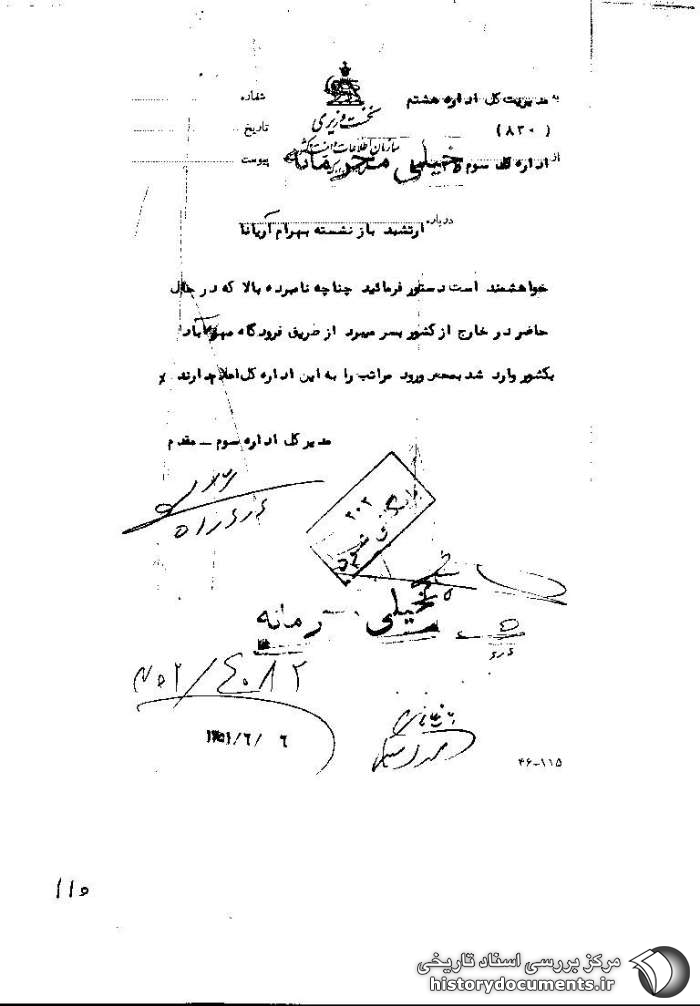 نخست وزیری
سازمان اطلاعات و امنیت کشور
به مدیریت کل اداره هشتم
(۸۳۰)
از اداره کل سوم
شماره
تاریخ
پیوست
خیلی محرمانه
درباره ارتشبد بازنشسته بهرام آریانا
خواهشمند است دستور فرمائید چنانچه نامبرده بالا که در حال
حاضر در خارج از کشور بسر میبرد از طریق فرودگاه مهرآباد
بکشور وارد شد بمحض ورود مراتب را به این اداره کل اعلام دارند
مدیر کل اداره سوم ـ مقدم
۳۰۲
خیلی محرمانه
۱۳۵۱/۶/۶
۴۶-۱۱۵
۱۱۵
مرکز بررسی اسناد تاریخی
historydocuments.ir